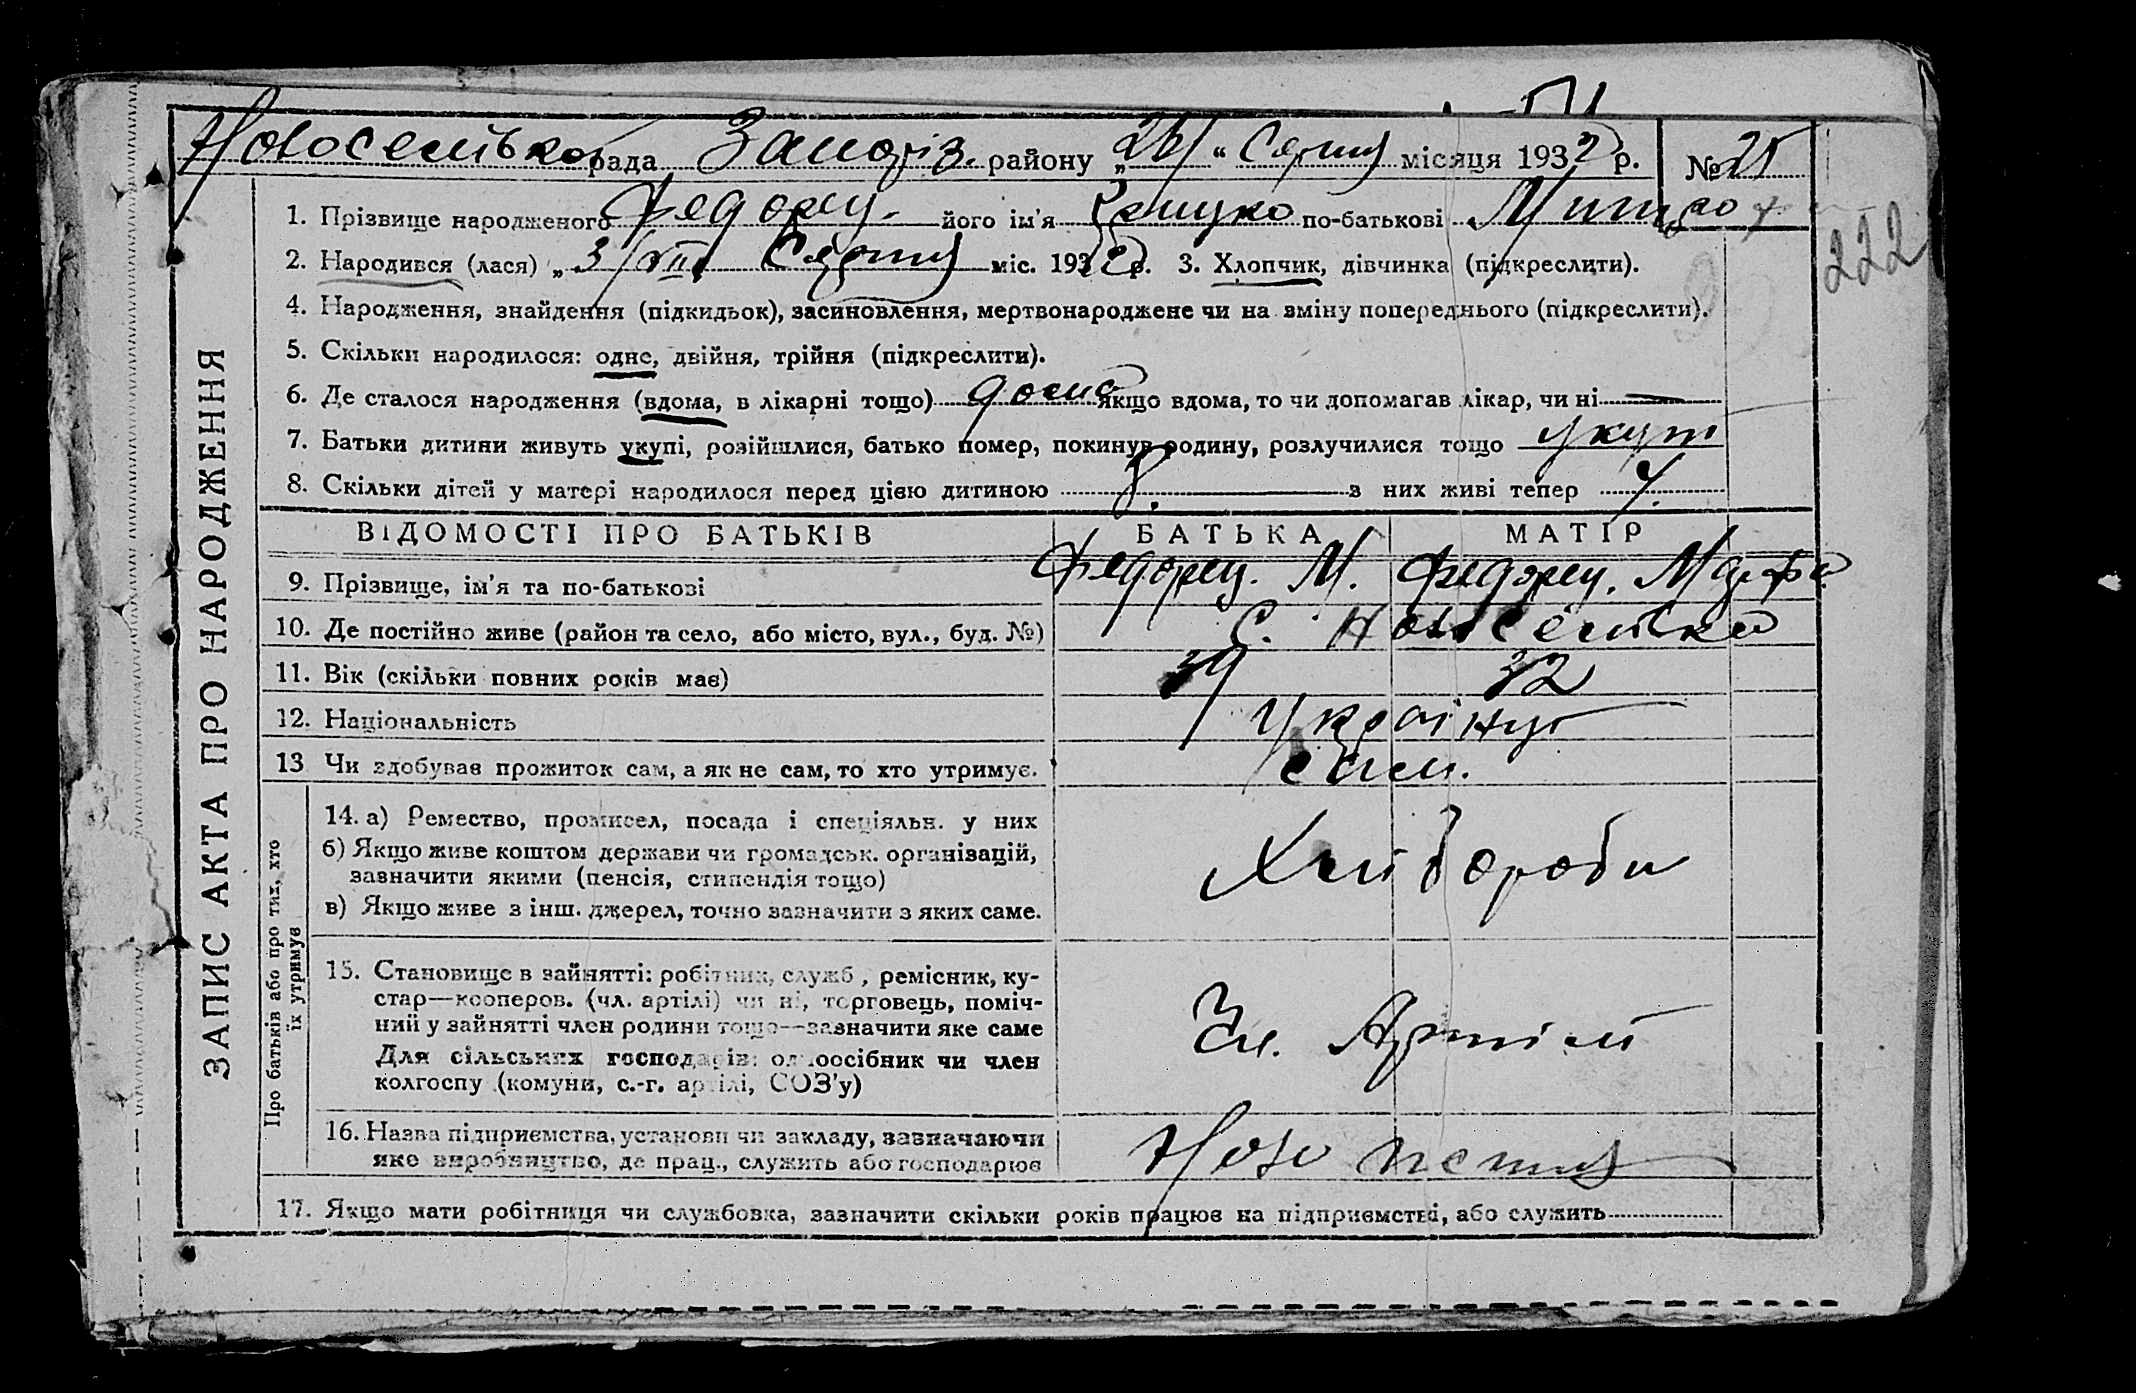 Новоселівська рада Запоріз. району „26“ Серпня місяця 1932 р. № 25
222
1. Прізвище народженого Федорец. його ім'я по-батькові
2. Народився (лася) „3/VIII Серпня міс. 1932 р. 3. Хлопчик, дівчинка (підкреслити).
4. Народження, знайдення (підкидьок), засиновлення, мертвонароджене чи на зміну попереднього (підкреслити).
5. Скільки народилося: одне, двійня, трійня (підкреслити).
6. Де сталося народження (вдома, в лікарні тощо) дома якщо вдома, то чи допомагав лікар, чи ні —
7. Батьки дитини живуть укупі, розійшлися, батько помер, покинув родину, розлучилися тощо укупі
8. Скільки дітей у матері народилося перед цією дитиною 8. з них живі тепер 4.
ВІДОМОСТІ ПРО БАТЬКІВ БАТЬКА МАТІР
9. Прізвище, ім'я та по-батькові Федорец. М. Федорец. Марфа
10. Де постійно живе (район та село, або місто, вул., буд. №) С. Новоселівка
11. Вік (скільки повних років має) 39 32
12. Національність Українці
13 Чи здобував прожиток сам, а як не сам, то хто утримує. сам.
14. а) Ремество, промисел, посада і спеціяльн. у них
б) Якщо живе коштом держави чи громадськ. організацій,
зазначити якими (пенсія, стипендія тощо)
в) Якщо живе з інш. джерел, точно зазначити з яких саме.
Хліборобы
15. Становище в зайнятті: робітник, служб., ремісник, ку-
стар—кооперов. (чл. артілі) чи ні, торговець, поміч-
ний у зайнятті член родини тощо—зазначити яке саме
Для сільських господарів: одноосібник чи член
колгоспу (комуни, с.-г. артілі, СОЗ'у)
Чл. Артілі
16. Назва підприємства, установи чи закладу, зазначаючи
яке виробництво, де прац., служить або господарює
17. Якщо мати робітниця чи службовка, зазначити скільки років працює на підприємстві, або служить
ЗАПИС АКТА ПРО НАРОДЖЕННЯ
Про батьків або про тих, хто
їх утримує